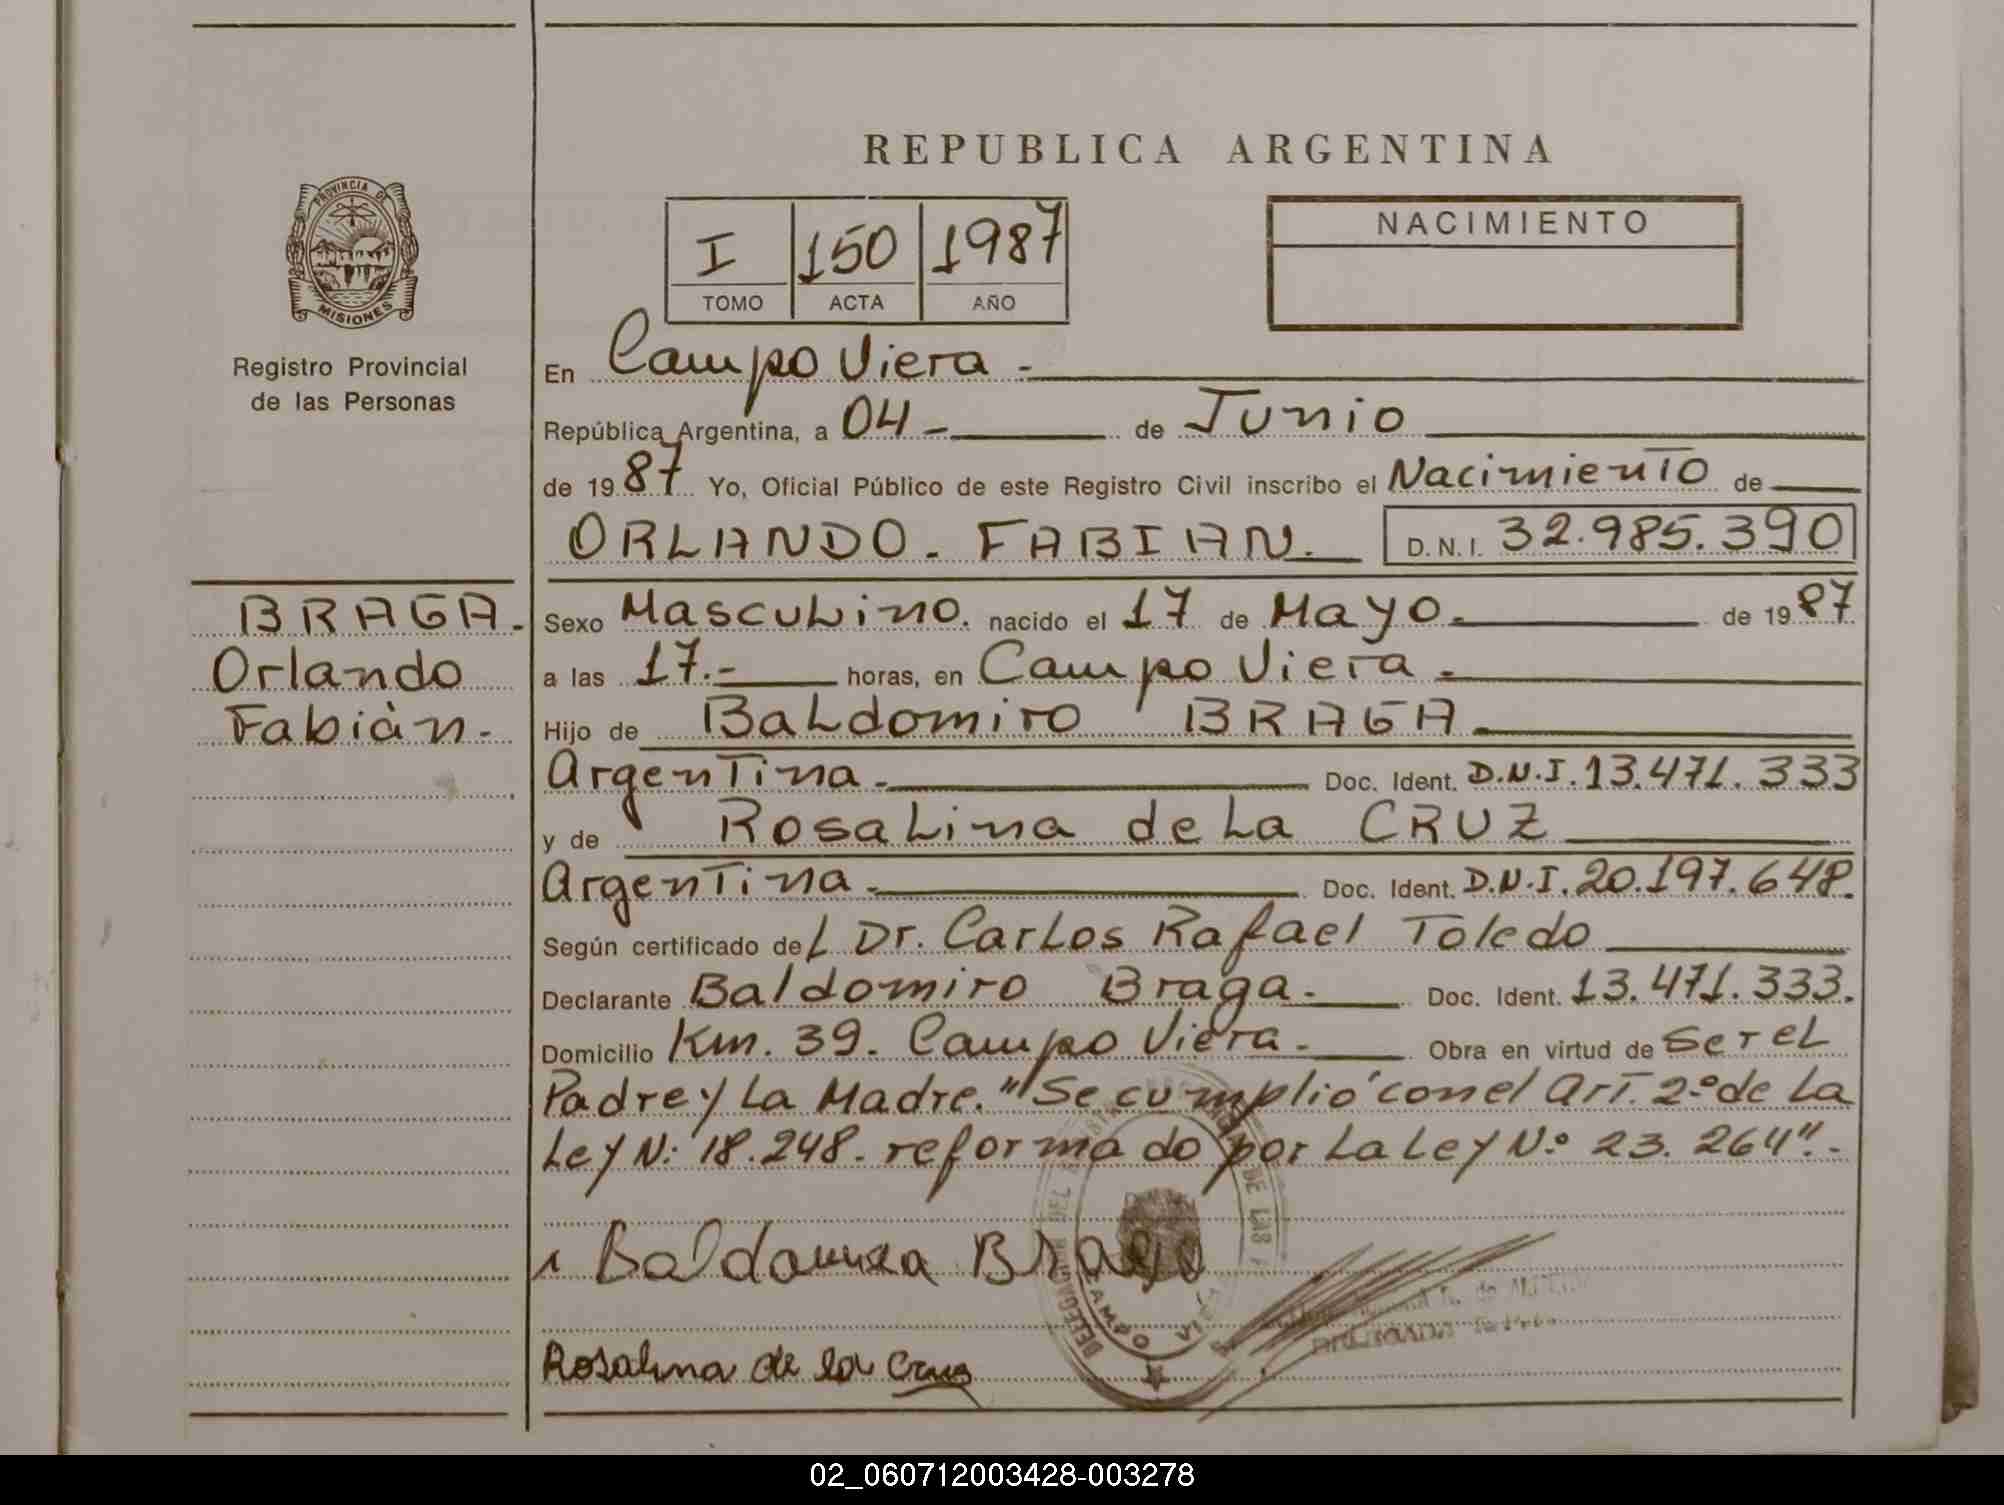 REPUBLICA ARGENTINA
PROVINCIA DE
MISIONES
Registro Provincial
de las Personas
I 150 1987
TOMO ACTA AÑO
NACIMIENTO
En Campo Viera -
República Argentina, a 04 - de Junio
de 19 87 Yo, Oficial Público de este Registro Civil inscribo el Nacimiento de
ORLANDO - FABIAN. D.N.I. 32.985.390
BRAGA.
Orlando
Fabián.-
Sexo Masculino. nacido el 17 de Mayo. de 19 87
a las 17.- horas, en Campo Viera -
Hijo de Baldomiro BRAGA
Argentina - Doc. Ident. D.N.I. 13.471.333
y de Rosalina de la CRUZ
Argentina - Doc. Ident. D.N.I. 20.197.648.
Según certificado del Dr. Carlos Rafael Toledo
Declarante Baldomiro Braga. Doc. Ident. 13.471.333.
Domicilio Km. 39. Campo Viera - Obra en virtud de ser el
Padre y La Madre. "Se cumplió con el Art. 2º de La
Ley Nº 18.248. reformado por La Ley Nº 23.264".-
Rosalina de la Cruz
CAMPO VIERA
02_060712003428-003278